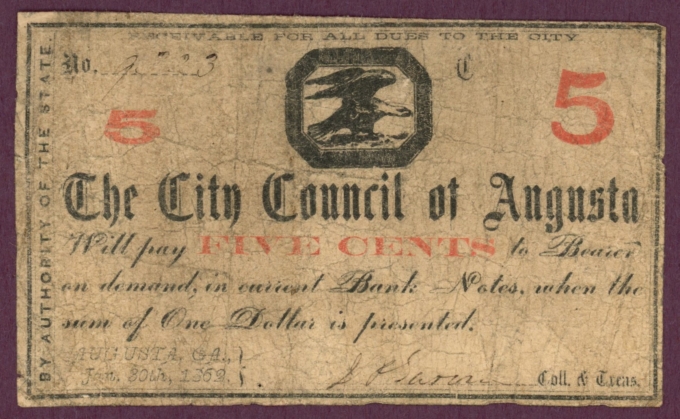 RECEIVABLE FOR ALL DUES TO THE CITY
BY AUTHORITY OF THE STATE.
No. C
5 5
The City Council of Augusta
Will pay FIVE CENTS to Bearer
on demand, in current Bank Notes, when the
sum of One Dollar is presented.
AUGUSTA, GA.,
Jan. 20th, 1862.
Coll. & Treas.